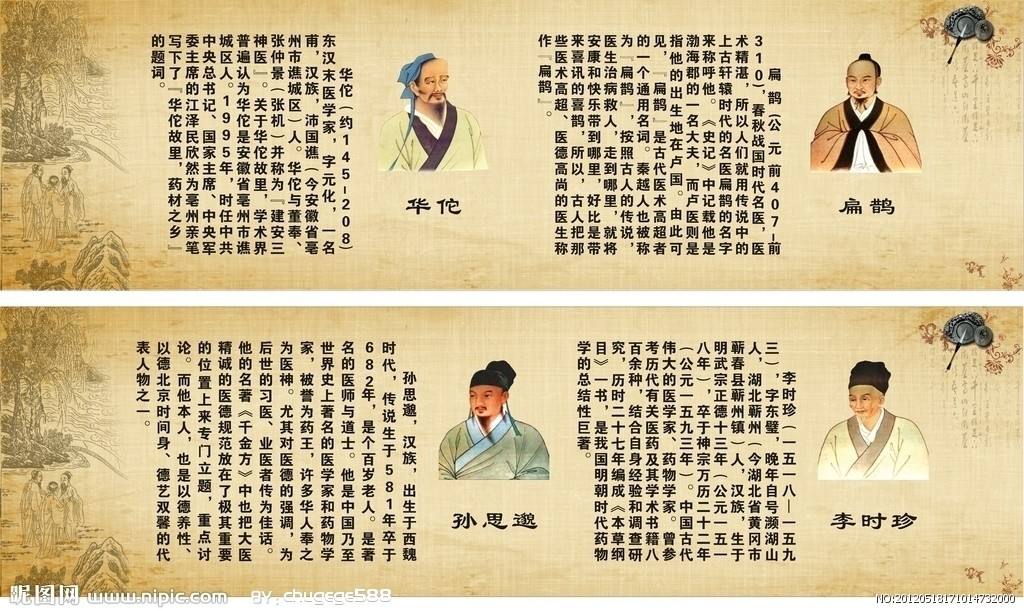 扁鹊
扁鹊（公元前407-前
310），春秋战国时代名医，医
术精湛，所以人们就用传说中的
上古轩辕时代的名医扁鹊的名字
来称呼他。《史记》中记载他是
渤海郡的一名大夫，而卢医则是
指他的出生地在卢国。由此可
见，『扁鹊』是古代医术高超者
的一个通用名词。秦越人也被称
为『扁鹊』，按照古人的传说，
医生治病救人，走到哪里，就将
安康和快乐带到哪里，好比是带
来喜讯的喜鹊，所以，古人把那
些医术高超、医德高尚的医生称
作『扁鹊』。
华佗
华佗（约145-208）
东汉末医学家，字元化，一名
甫，汉族，沛国谯（今安徽省亳
州市谯城区）人。华佗与董奉、
张仲景（张机）并称为『建安三
神医』。关于华佗故里，学术界
普遍认为华佗是安徽省亳州市谯
城区人。1995年，时任中共
中央总书记、国家主席、中央军
委主席的江泽民欣然为亳州亲笔
写下了『华佗故里，药材之乡』
的题词。
李时珍
李时珍（一五一八—一五九
三），字东璧，晚年自号濒湖山
人，湖北蕲州（今湖北省黄冈市
蕲春县蕲州镇）人，汉族，生于
明武宗正德十三年（公元一五一
八年），卒于神宗万历二十二年
（公元一五九三年）。中国古代
伟大的医学家、药物学家。曾参
考历代有关医药及其学术书籍八
百余种，结合自身经验和调查研
究，历时二十七年编成《本草纲
目》一书，是我国明朝时代药物
学的总结性巨著。
孙思邈
孙思邈，汉族，出生于西魏
时代，传说生于581年卒于
682年，是个百岁老人。是著
名的医师与道士。他是中国乃至
世界史上著名的医学家和药物学
家，被誉为药王，许多华人奉之
为医神。尤其对医德的强调，为
后世的习医、业医者传为佳话。
他的名著《千金方》中也把大医
精诚的医德规范放在了极其重要
的位置上来专门立题，重点讨
论。而他本人，也是以德养性、
以德北京时间身、德艺双馨的代
表人物之一。
昵图网 www.nipic.com BY: chugege588
NO:20120518171014732000